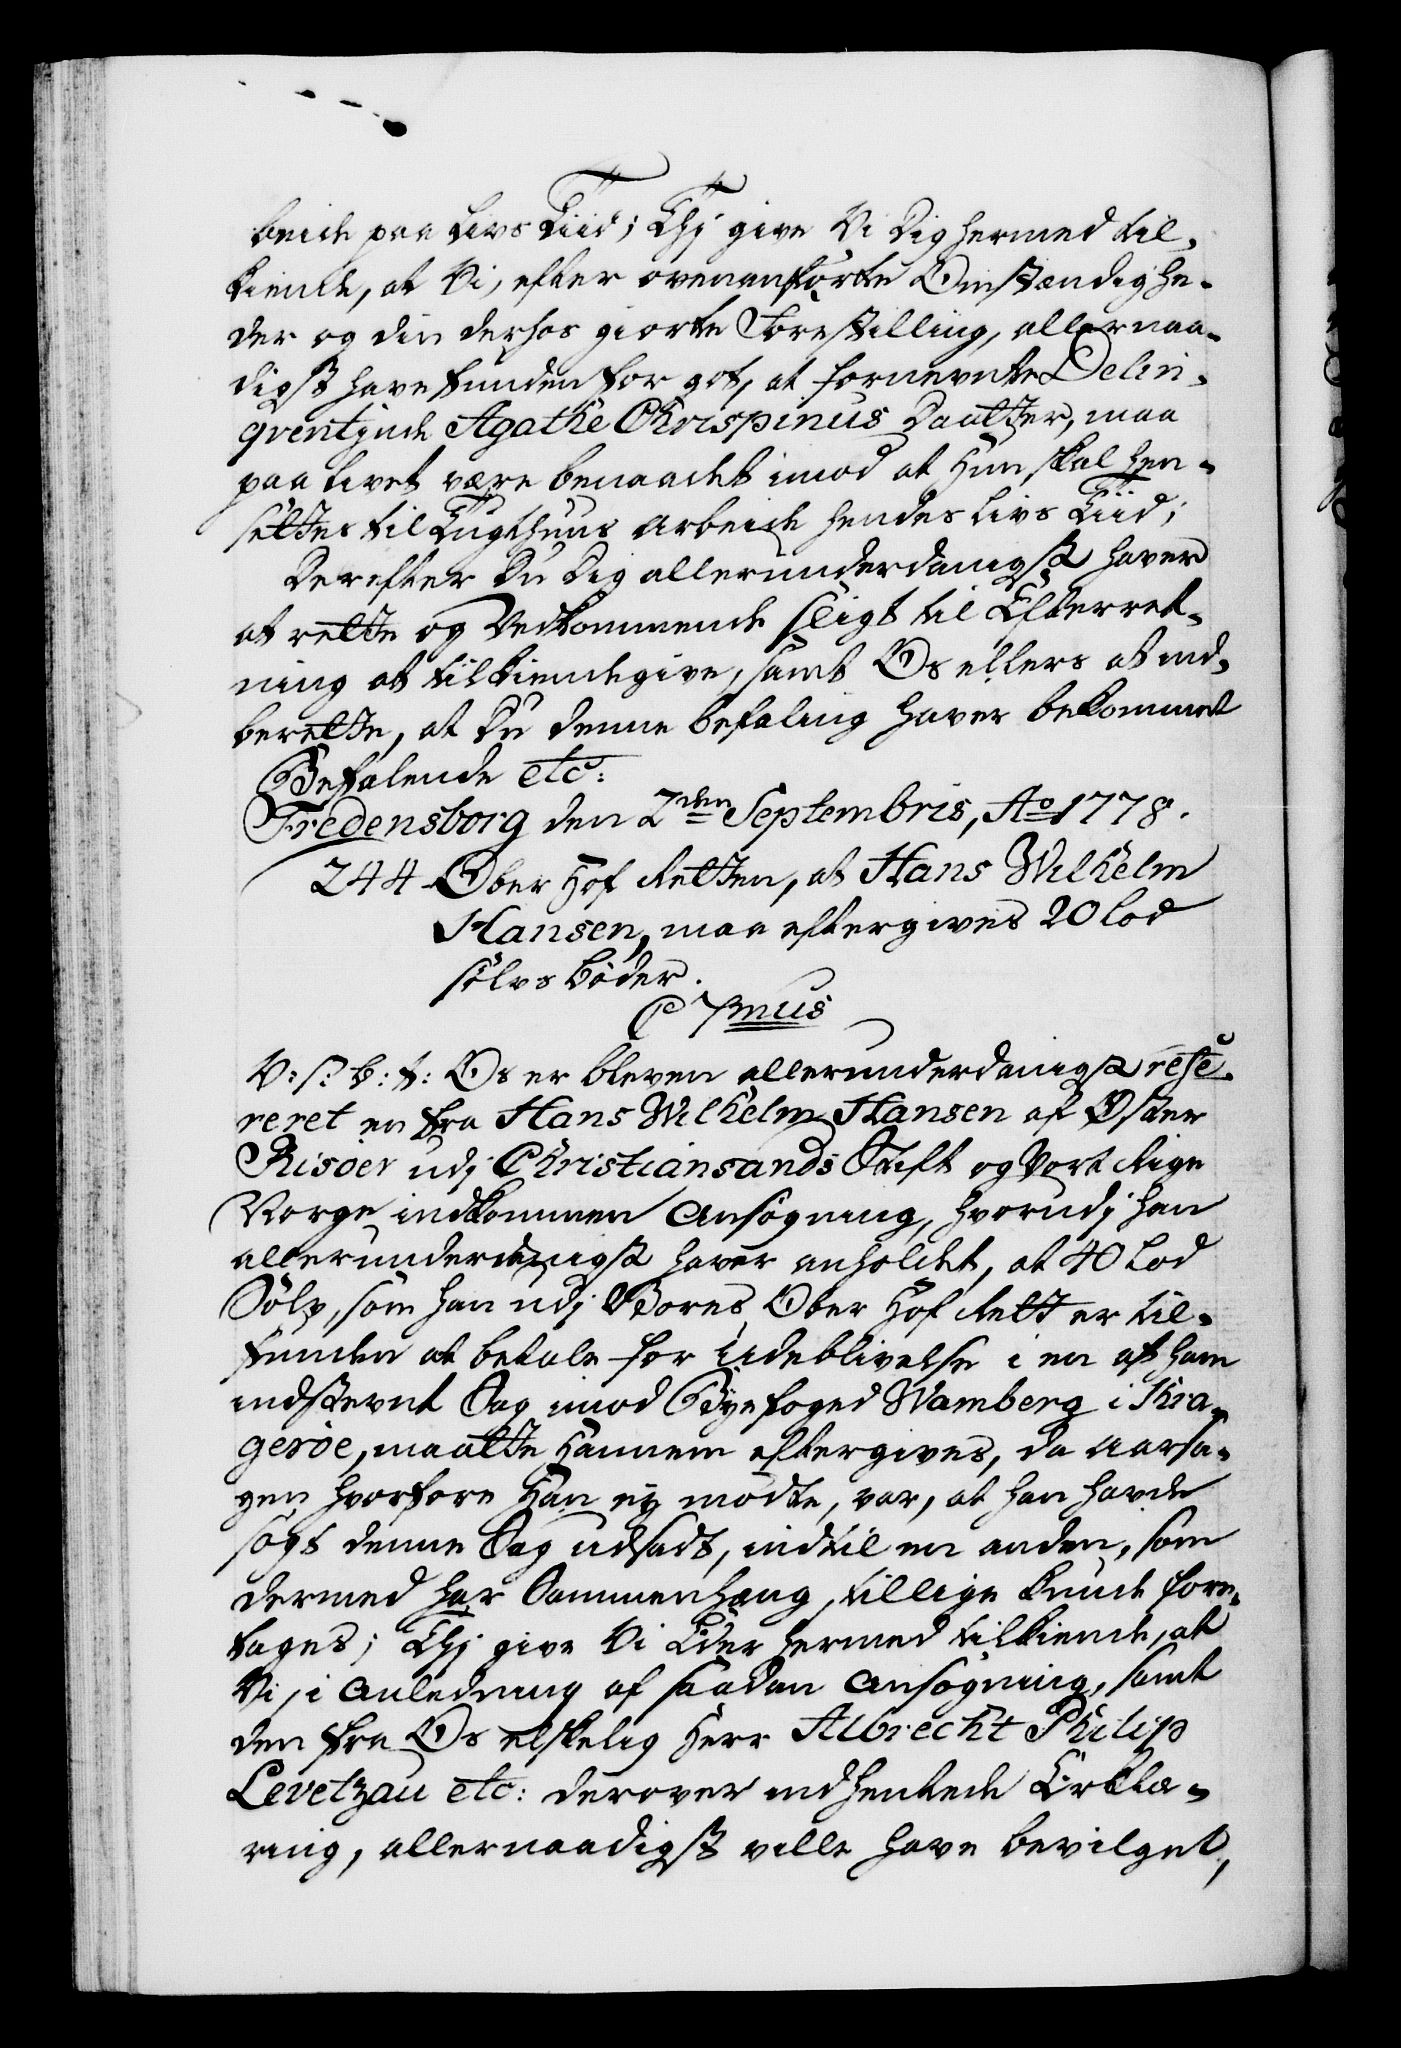 beide paa Livs Tiid; Thj give Vi Dig hermed til-
kiende, at Vi, efter ovenanførte Omstændighe-
der og din derhos giorte Forestilling, allernaa-
digst have funden for got, at fornevnte Delin-
qventinde Agathe Chrispinus Daatter, maa
paa Livet være benaadet imod at Hun skal hen-
settes til Tugthuus Arbeide hendes Livs Tiid;
Derefter Du Dig allerunderdanigst haver
at rette og Vedkommende sligt til Efterret-
ning at tilkiendegive, samt Os ellers at ind-
berette, at Du denne befaling haver bekommet
Befalende etc:
Fredensborg den 2den Septembris, Ao 1778.
244 Ober Hof Retten, at Hans Wilhelm
Hansen, maa eftergives 20 Lod
sølvs bøder.
C 7mus
V: S: b: t: Os er bleven allerunderdanigst refe-
reret en fra Hans Wilhelm Hansen af Øster
Risøer udj Christiansands Stift og Vort Rige
Norge indkommen Ansøgning, hvorudj han
allerunderdanigst haver anholdet, at 40 Lod
Sølv, som han udj Vores Ober Hof Rett er til-
funden at betale for Udeblivelse i en af ham
indstevnt Sag imod Byefoged Wamberg i Kra-
gerøe, maatte Hannem eftergives, da Aarsa-
gen hvorfore Han ej mødte, var, at han havde
søgt denne Sag udsadt, indtil en anden, som
dermed har Sammenhæng, tillige kunde fore-
tages; Thj give Vi Eder hermed tilkiende, at
Vi, i Anledning af saadan Ansøgning, samt
den fra Os elskelig Herr Albrecht Philip
Levetzau etc: derover indhentede Erklæ-
ring, allernaadigst ville have bevilget,